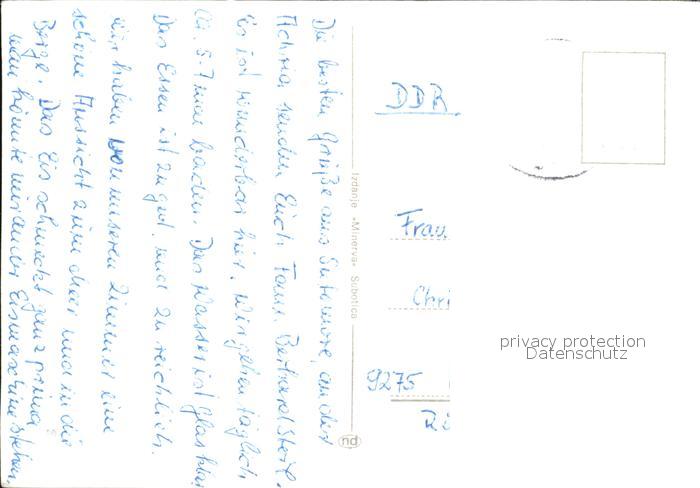 Die besten Grüße aus Sutomore, an der
Adria, senden Euch Fam. Bernhard
Es ist wunderbar hier. Wir gehen täglich
ca. 5-7 mal baden. Das Wasser ist glasklar
Das Essen ist zu gut und zu reichlich.
Wir haben von unserem Zimmer eine
schöne Aussicht zum Meer und in die
Berge. Das Eis schmeckt ganz prima
man könnte an der Eismaschine stehen
Izdanje »Minerva« Subotica
nd
DDR.
Frau
Chri
9275
privacy protection
Datenschutz